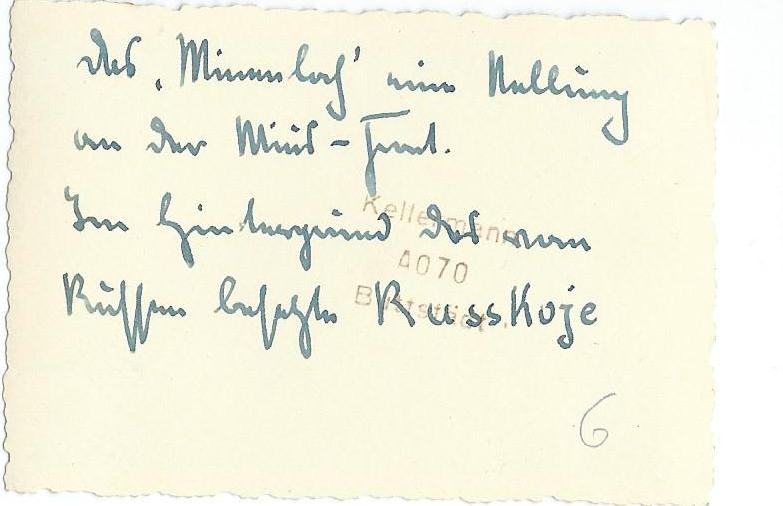 Das ‚Minenloch' eine Stellung
an der Mius-Front.
Im Hintergrund das vom
Russen besetzte Russkoje
Kellermann
4070
Buttstädt
6